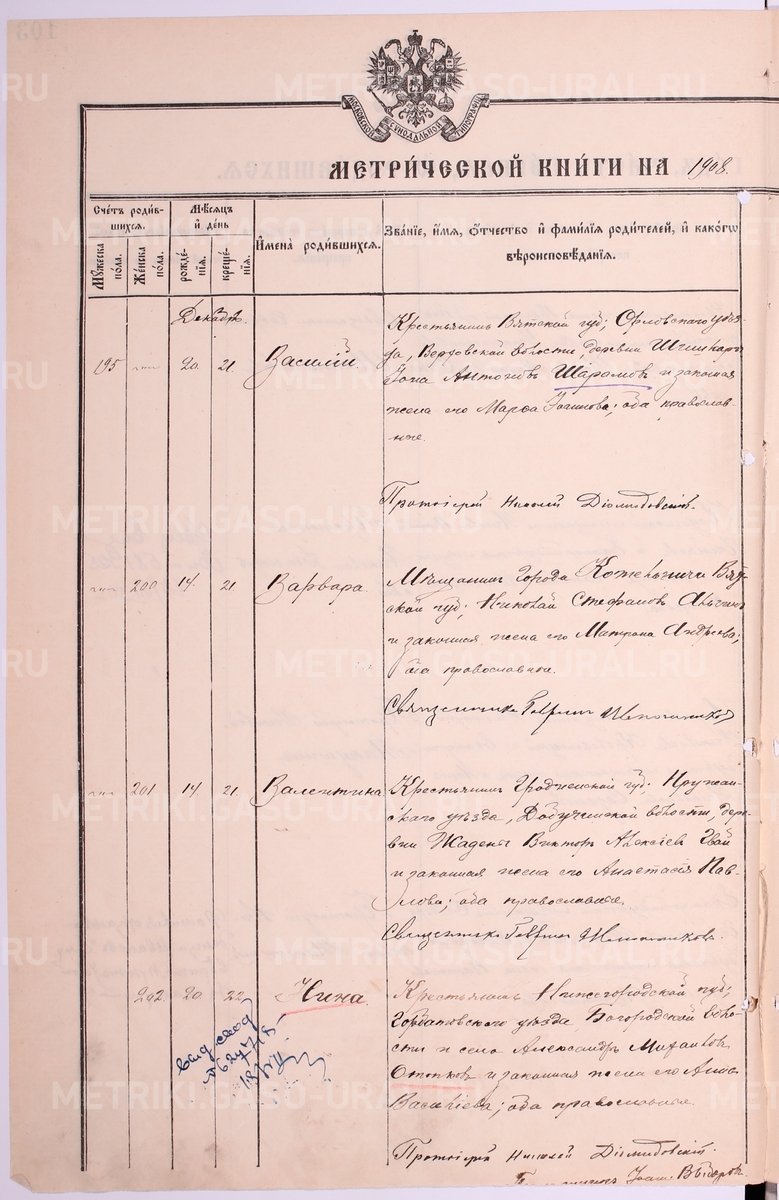 МОСКОВСКОЙ СѴНОДАЛЬНОЙ ТИПОГРАФІИ
МЕТРИЧЕСКОЙ КНИГИ НА 1908.
Счетъ родившихся.
Мужеска пола.
Женска пола.
Мѣсяцъ и день
рожденія.
крещенія.
Имена родившихся.
Званіе, имя, отчество и фамилія родителей, и какогѡ вѣроисповѣданія.
Декабрь.
195
20.
21.
Василій.
Крестьянинъ Вятской губ; Орловскаго уѣз-
да, Верховской волости, деревни
Іона Антоновъ Шарамовъ и законная
жена его Марѳа; оба православ-
ные.
Протоіерей Николай Діомидовскій.
200
14.
21
Варвара.
Мѣщанинъ города Котельнича Вят-
ской губ; Николай Стефановъ
и законная жена его Матрона Андреева;
оба православные.
Священникъ Гавриилъ
201
14.
21.
Валентина.
Крестьянинъ Гродненской губ. Пружан-
скаго уѣзда, волости, дерев-
ни Викторъ Алексіевъ
и законная жена его Анастасія Пав-
лова; оба православные.
Священникъ Гавриилъ
202.
20.
22.
Нина.
Крестьянинъ Нижегородской губ;
Горбатовскаго уѣзда Богородской воло-
сти и села Александръ Михаиловъ
и законная жена его Анна
Василіева; оба православные.
Протоіерей Николай Діомидовскій.
METRIKI.GASO-URAL.RU